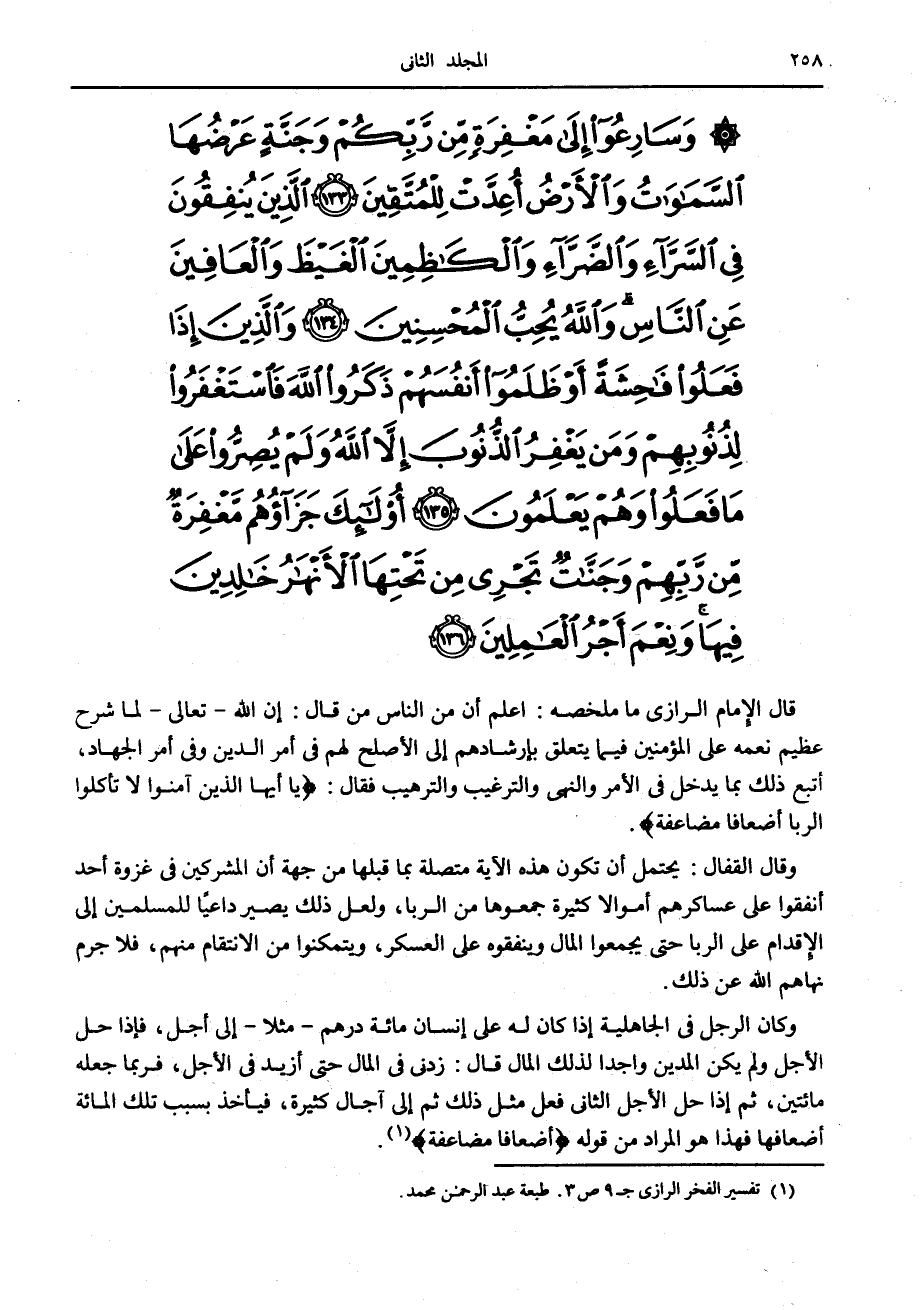 ٢٥٨ المجلد الثانى
۞ وَسَارِعُوٓا۟ إِلَىٰ مَغْفِرَةٍ مِّن رَّبِّكُمْ وَجَنَّةٍ عَرْضُهَا
ٱلسَّمَٰوَٰتُ وَٱلْأَرْضُ أُعِدَّتْ لِلْمُتَّقِينَ ﴿١٣٣﴾ ٱلَّذِينَ يُنفِقُونَ
فِى ٱلسَّرَّآءِ وَٱلضَّرَّآءِ وَٱلْكَٰظِمِينَ ٱلْغَيْظَ وَٱلْعَافِينَ
عَنِ ٱلنَّاسِ ۗ وَٱللَّهُ يُحِبُّ ٱلْمُحْسِنِينَ ﴿١٣٤﴾ وَٱلَّذِينَ إِذَا
فَعَلُوا۟ فَٰحِشَةً أَوْ ظَلَمُوٓا۟ أَنفُسَهُمْ ذَكَرُوا۟ ٱللَّهَ فَٱسْتَغْفَرُوا۟
لِذُنُوبِهِمْ وَمَن يَغْفِرُ ٱلذُّنُوبَ إِلَّا ٱللَّهُ وَلَمْ يُصِرُّوا۟ عَلَىٰ
مَا فَعَلُوا۟ وَهُمْ يَعْلَمُونَ ﴿١٣٥﴾ أُو۟لَٰٓئِكَ جَزَآؤُهُم مَّغْفِرَةٌ
مِّن رَّبِّهِمْ وَجَنَّٰتٌ تَجْرِى مِن تَحْتِهَا ٱلْأَنْهَٰرُ خَٰلِدِينَ
فِيهَا ۚ وَنِعْمَ أَجْرُ ٱلْعَٰمِلِينَ ﴿١٣٦﴾
قال الإمام الرازى ما ملخصه : اعلم أن من الناس من قال : إن الله - تعالى - لما شرح
عظيم نعمه على المؤمنين فيما يتعلق بإرشادهم إلى الأصلح لهم فى أمر الدين وفى أمر الجهاد،
أتبع ذلك بما يدخل فى الأمر والنهى والترغيب والترهيب فقال : ﴿يا أيها الذين آمنوا لا تأكلوا
الربا أضعافا مضاعفة﴾.
وقال القفال : يحتمل أن تكون هذه الآية متصلة بما قبلها من جهة أن المشركين فى غزوة أحد
أنفقوا على عساكرهم أموالا كثيرة جمعوها من الربا، ولعل ذلك يصير داعيًا للمسلمين إلى
الإقدام على الربا حتى يجمعوا المال وينفقوه على العسكر، ويتمكنوا من الانتقام منهم، فلا جرم
نهاهم الله عن ذلك.
وكان الرجل فى الجاهلية إذا كان له على إنسان مائة درهم - مثلا - إلى أجل، فإذا حل
الأجل ولم يكن المدين واجدا لذلك المال قال : زدنى فى المال حتى أزيد فى الأجل، فربما جعله
مائتين، ثم إذا حل الأجل الثانى فعل مثل ذلك ثم إلى آجال كثيرة، فيأخذ بسبب تلك المائة
أضعافها فهذا هو المراد من قوله ﴿أضعافا مضاعفة﴾(١).
(١) تفسير الفخر الرازى جـ ٩ ص٣. طبعة عبد الرحمٰن محمد.